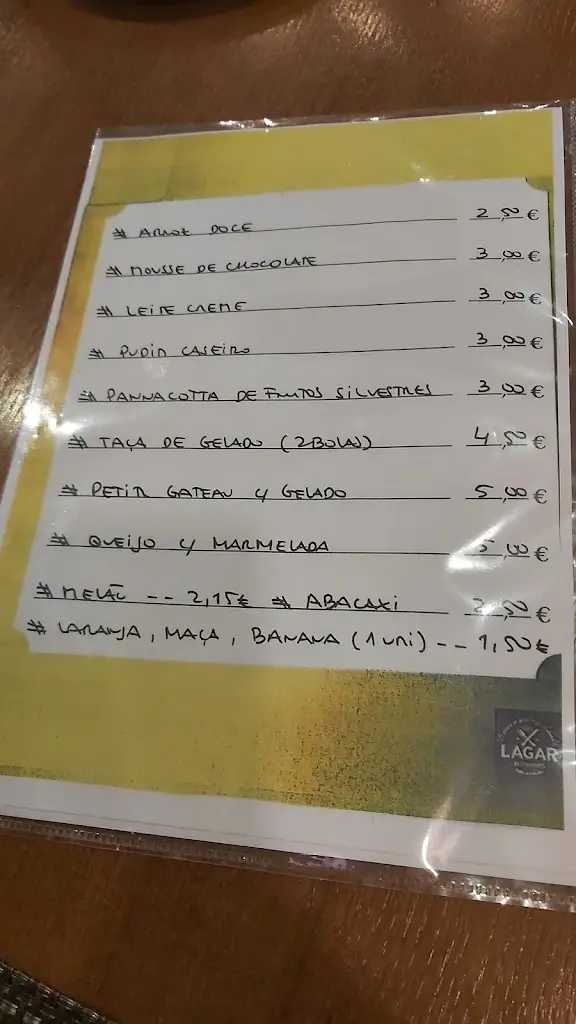 # ARROZ DOCE 2,50€
# MOUSSE DE CHOCOLATE 3,00€
# LEITE CREME 3,00€
# PUDIM CASEIRO 3,00€
# PANNACOTTA DE FRUTOS SILVESTRES 3,00€
# TAÇA DE GELADO (2 BOLAS) 4,50€
# PETIT GATEAU C/ GELADO 5,00€
# QUEIJO C/ MARMELADA 5,00€
# MELÃO -- 2,15€ # ABACAXI 2,50€
# LARANJA, MAÇA, BANANA (1 UNI) -- 1,50€
LAGAR